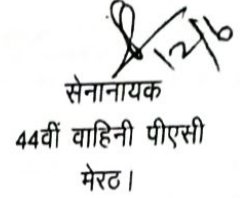 12/6
सेनानायक
44वीं वाहिनी पीएसी
मेरठ।